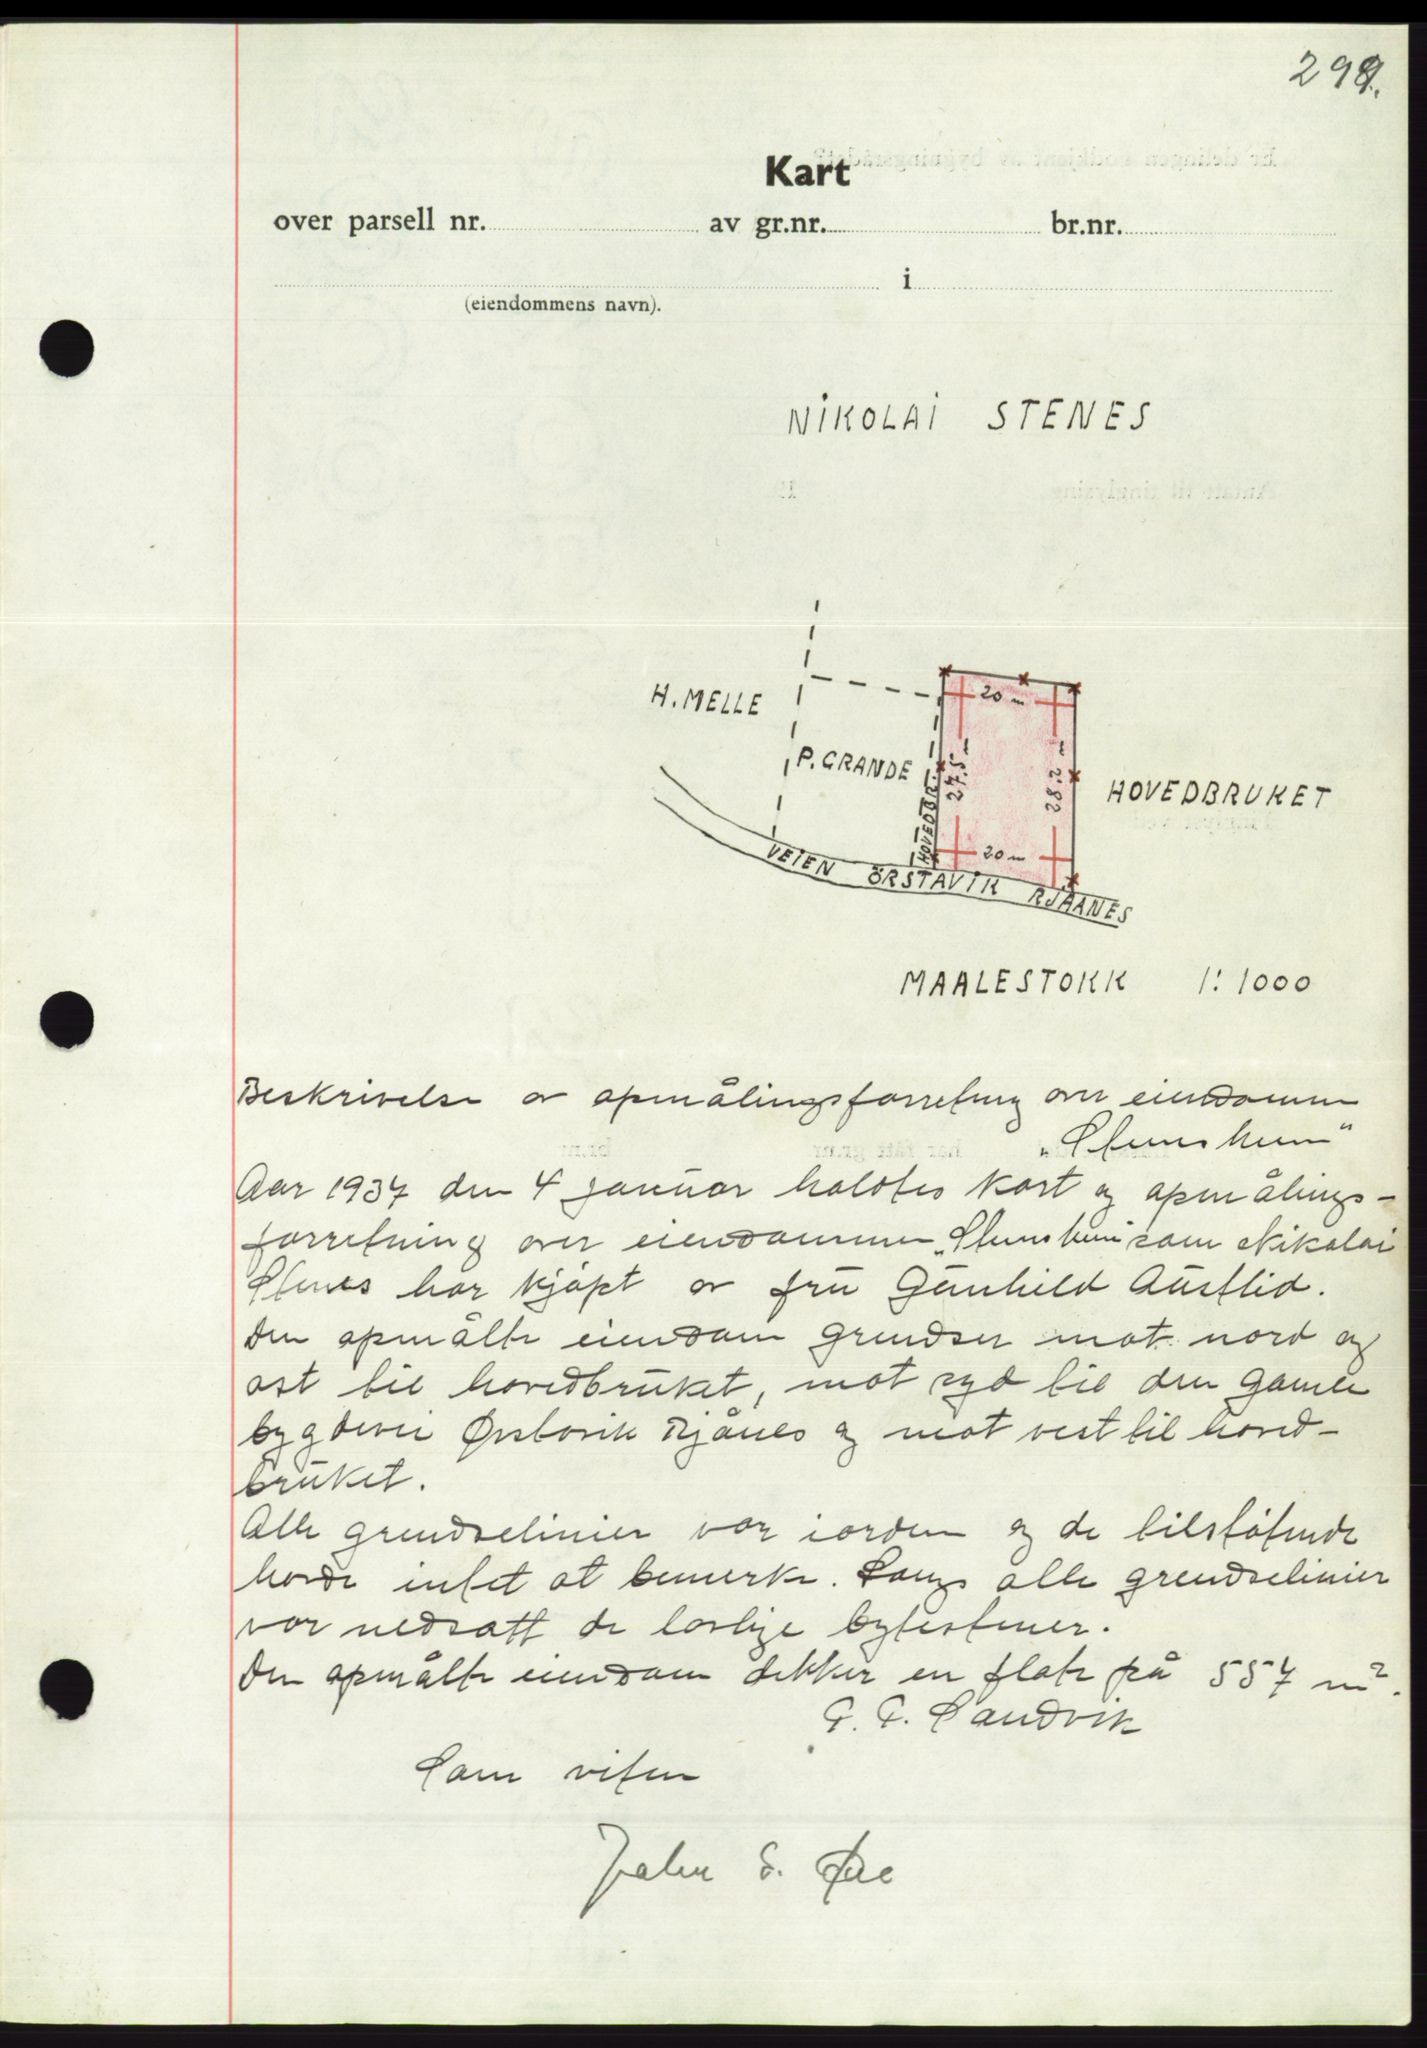 299.
Kart
over parsell nr. av gr.nr. br.nr.
i
(eiendommens navn).
NIKOLAI STENES
H. MELLE
P. GRANDE
HOVEDBR.
20 m
27.5 m
28.2 m
20 m
HOVEDBRUKET
VEIEN ÖRSTAVIK RJÅANES
MAALESTOKK 1:1000
Beskrivelse av opmålingsforretning over eiendommen
„Stenesheim"
Aar 1937 den 4 januar holdtes kart og opmålings-
forretning over eiendommen „Stenesheim" som Nikolai
Stenes har kjöpt av fru Gunhild Austlid.
Den opmålte eiendom grendser mot nord og
ost til hovedbruket, mot syd til den gamle
bygdevei Ørstavik Rjånes og mot vest til hoved-
bruket.
Alle grendselinier var iorden og de tilstötende
havde intet at bemerke. Langs alle grendselinier
var nedsatt de lovlige bytestener.
Den opmålte eiendom dekker en flate på 557 m².
Sandvik
Som viten
John S. Øie